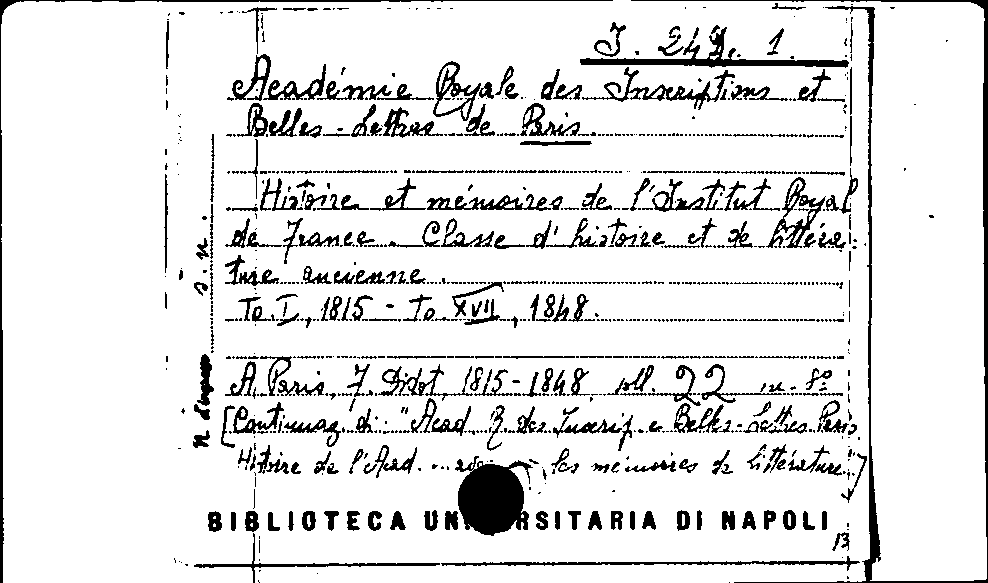 J. 24 De. 1
Académie Royale des Inscriptions et
Belles-Lettres de Paris.
Histoire et mémoires de l'Institut Royal
de France. Classe d'histoire et de littéra-
ture ancienne.
To. I, 1815 - To. XVII, 1848.
A Paris, F. Didot, 1815-1848, voll. 22 in-8º
[Continuaz. di: "Acad. R. des Inscrip. e Belles-Lettres Paris.
Histoire de l'Acad. ... les mémoires de littérature"]
N. d'ingresso s.n.
BIBLIOTECA UNIVERSITARIA DI NAPOLI
13